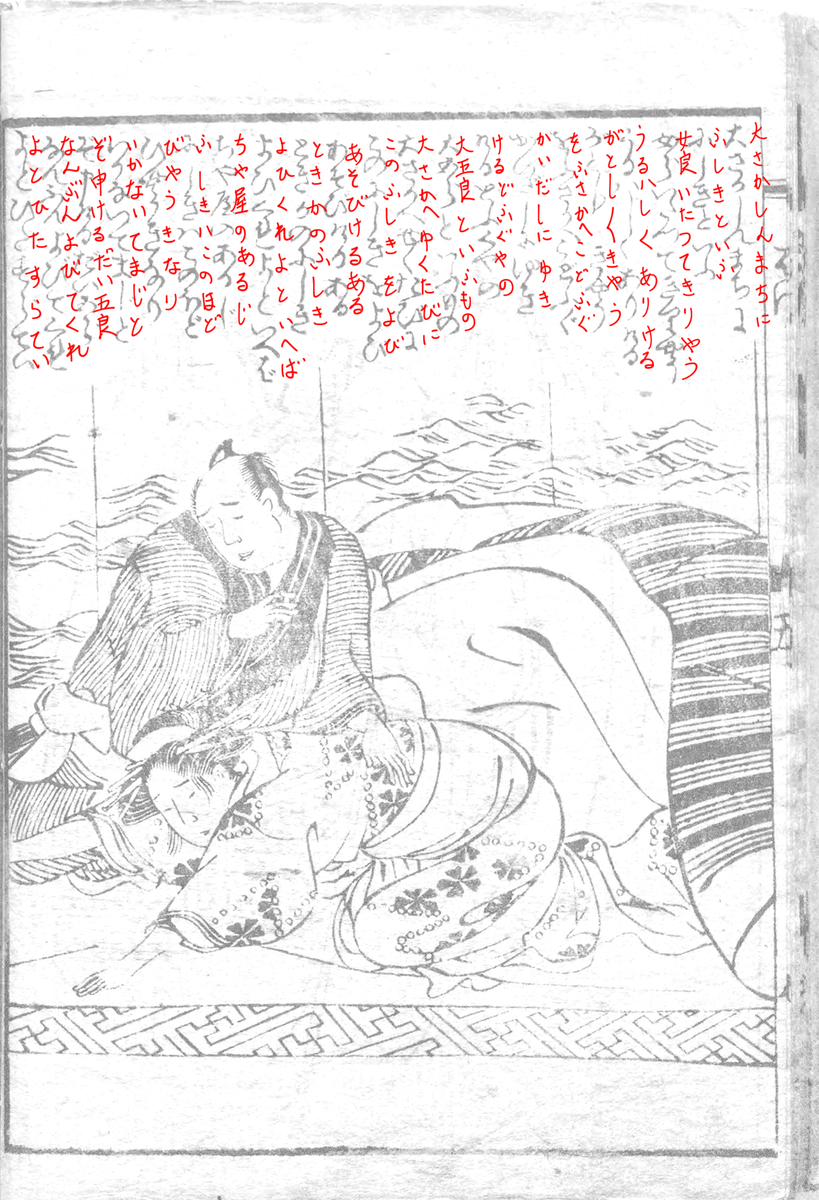 大さかしんまちに
ふしきといふ
女良いたつてきりやう
うるハしくありける
がとしノくきやう
をふさかへこどふぐ
かいだしにゆき
けるどふぐやの
大五良といふもの
大さかへゆくたびに
このふしきをよび
あそびけるある
ときかのふしき
よひくれよといへば
ちや屋のあるじ
ふしきハこのほど
びやうきなり
いかないてまじと
ぞ申ける〝だい五良
なんぶんよびてくれ
よとひたすらてい
五